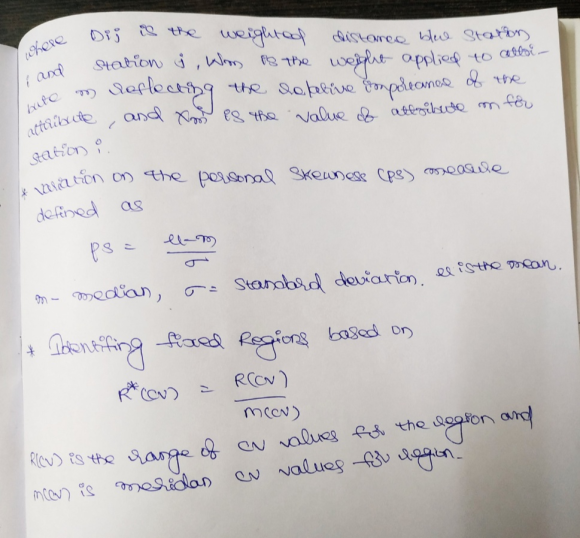 where Dij is the weighted distance b/w station
i and station j, Wm is the weight applied to attri-
bute m reflecting the relative importance of the
attribute, and Xmi is the value of attribute m for
station i.
* variation on the personal skewness (PS) measure
defined as
PS = μ-m / σ
m - median, σ = standard deviation. μ is the mean.
* Identifing fixed Regions based on
R*(CV) = R(CV) / m(CV)
R(CV) is the range of CV values for the region and
m(CV) is meridan CV values for region.